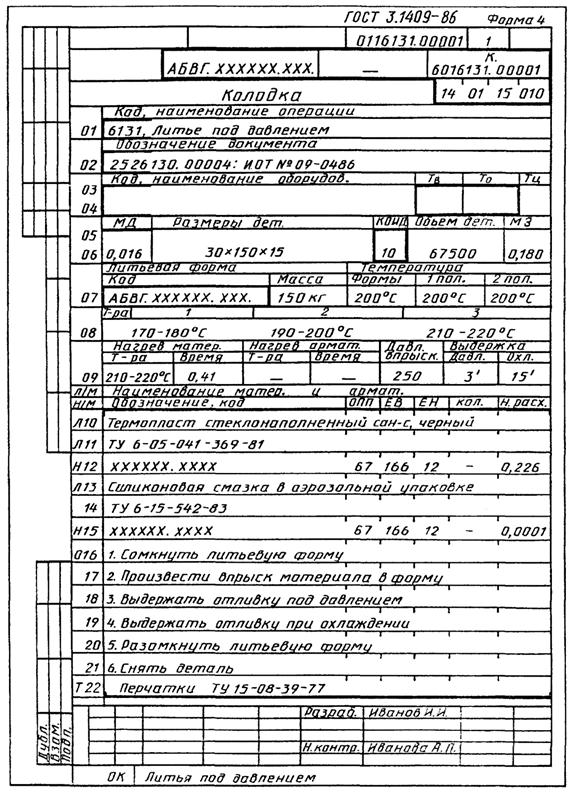 ГОСТ 3.1409-86 Форма 4
0116131.00001 1
АБВГ. XXXXXX.XXX. — К. 6016131.00001
Колодка 14 01 15 010
Код, наименование операции
01 6131, Литье под давлением
Обозначение документа
02 2526130. 00004: ИОТ №09-0486
Код, наименование оборудов. Тв То Тц
03
04
МД Размеры дет. КОИД Объем дет. МЗ
05
06 0,016 30×150×15 10 67500 0,180
Литьевая форма Температура
Код Масса Формы 1 пол. 2 пол.
07 АБВГ. XXXXXX. XXX. 150 кг 200°С 200°С 200°С
Т-ра 1 2 3
08 170-180°С 190-200°С 210-220°С
Нагрев матер. Нагрев армат. Давл. Выдержка
Т-ра Время Т-ра Время впрыск. Давл. Охл.
09 210-220°С 0,41 — — 250 3' 15'
Л/М Наименование матер. и армат.
Н/М Обозначение, код ОПП ЕВ ЕН кол. Н.расх.
Л10 Термопласт стеклонаполненный сан-с, черный
Л11 ТУ 6-05-041-369-81
Н12 XXXXXX. XXXX 67 166 12 - 0,226
Л13 Силиконовая смазка в аэрозольной упаковке
14 ТУ 6-15-542-83
Н15 XXXXXX. XXXX 67 166 12 - 0,0001
О16 1. Сомкнуть литьевую форму
17 2. Произвести впрыск материала в форму
18 3. Выдержать отливку под давлением
19 4. Выдержать отливку при охлаждении
20 5. Разомкнуть литьевую форму
21 6. Снять деталь
Т22 Перчатки ТУ 15-08-39-77
Разраб. Иванов И.И.
Н.контр. Иванова А.П.
Дубл.
Взам.
Подп.
ОК Литья под давлением